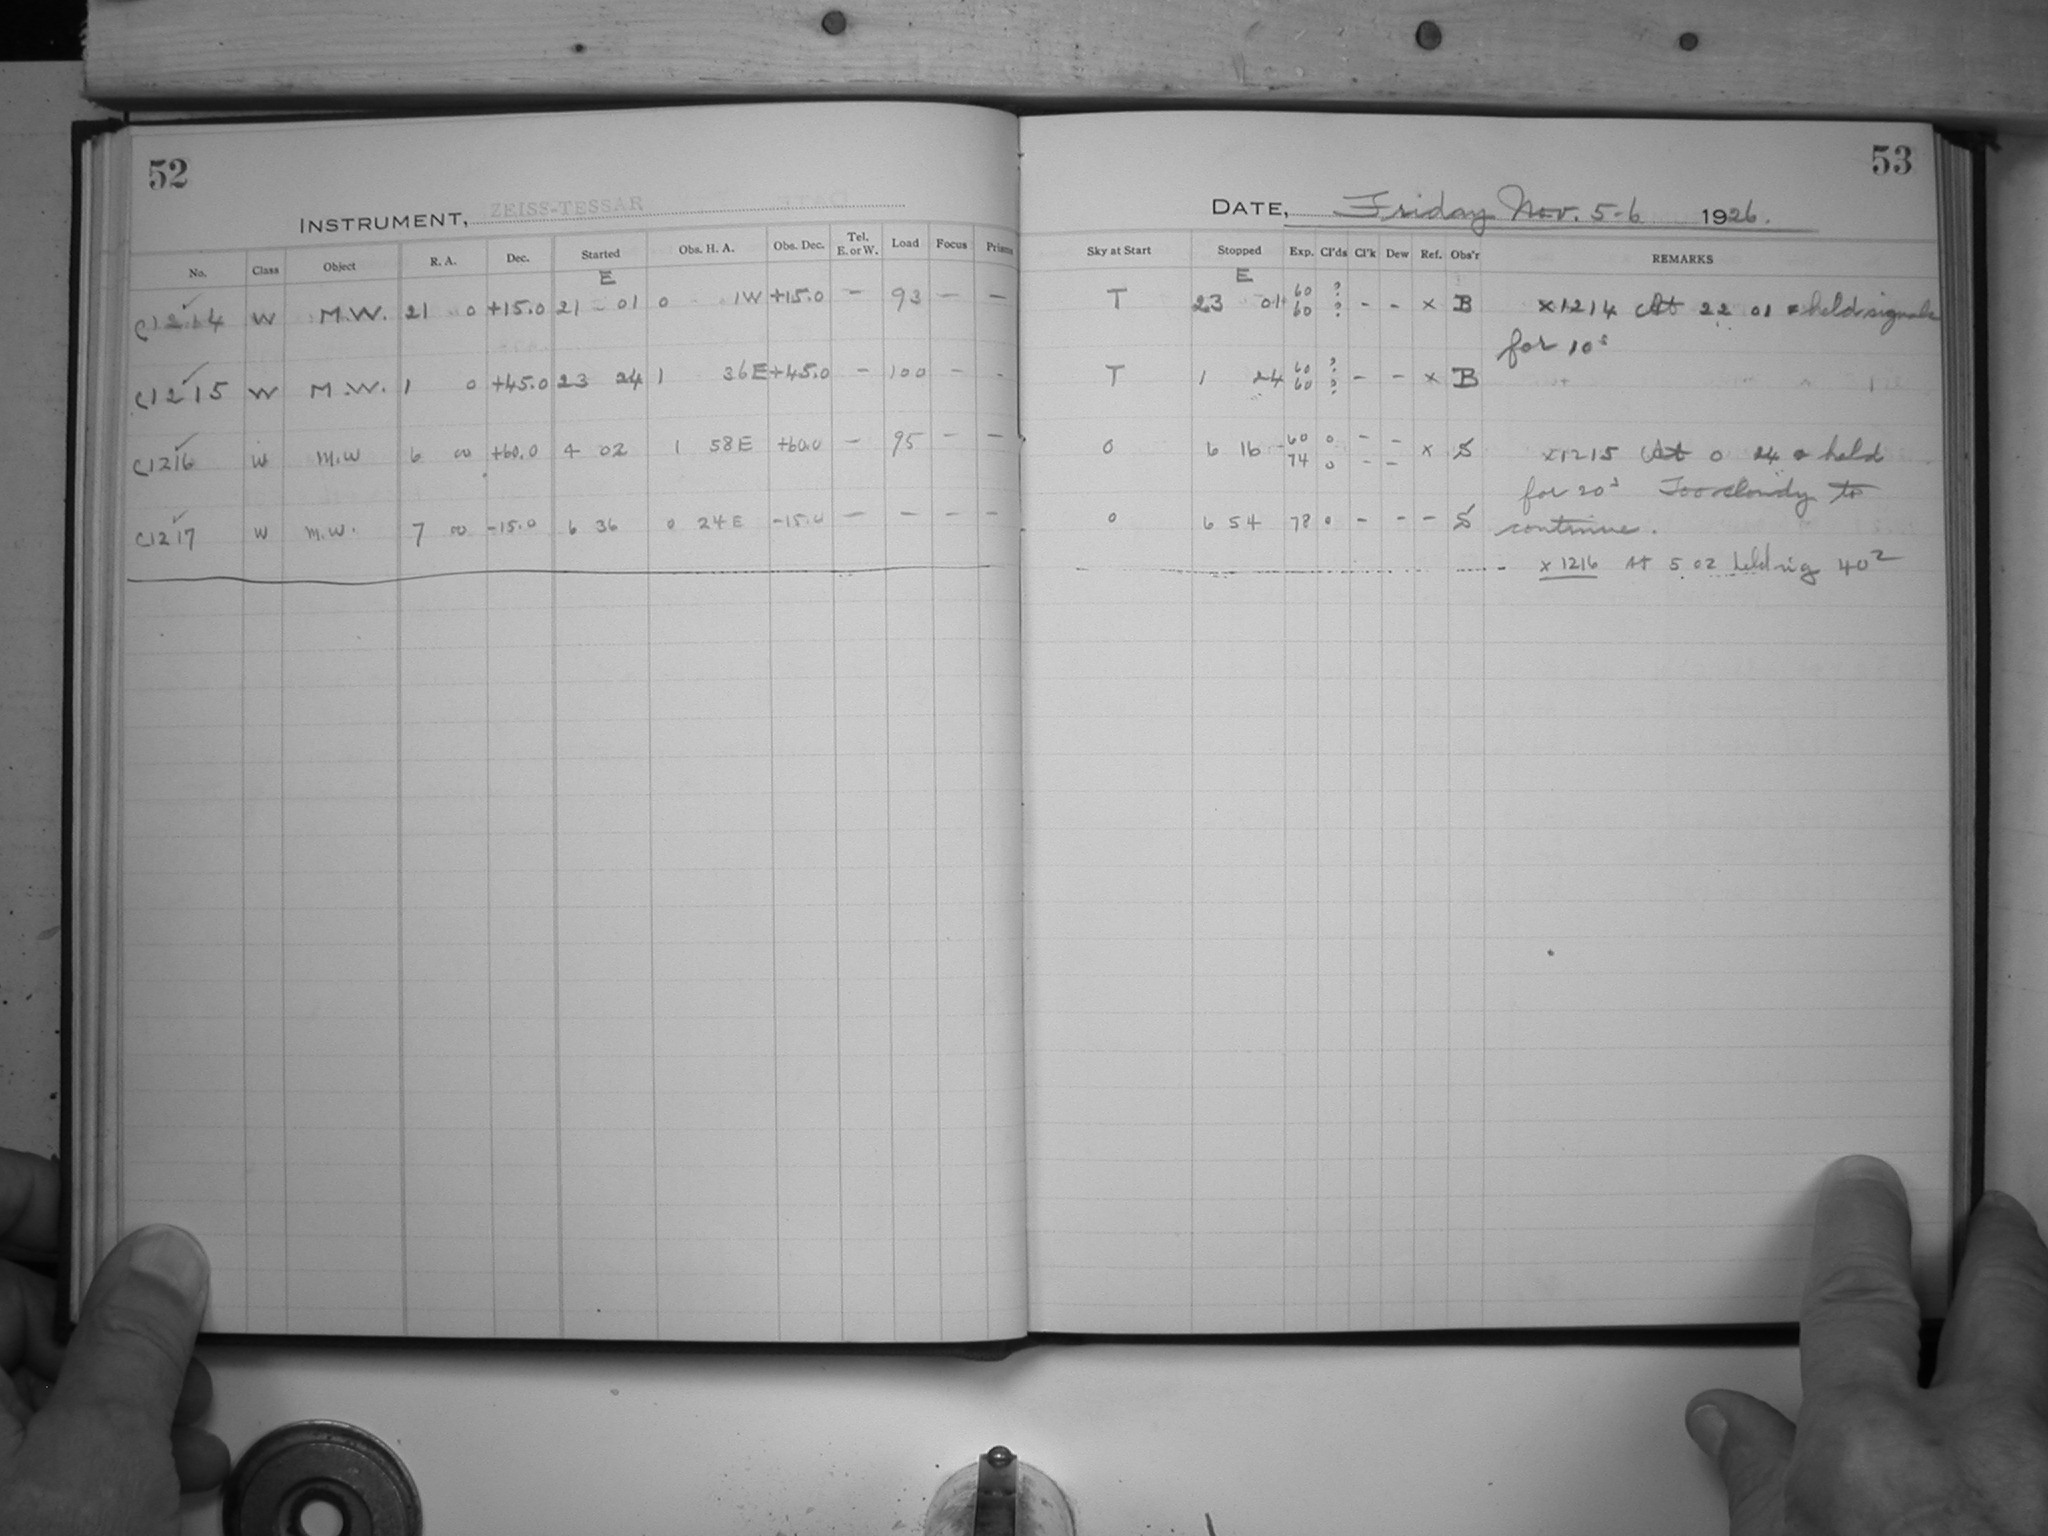 52
INSTRUMENT, ZEISS-TESSAR
No. Class Object R. A. Dec. Started Obs. H. A. Obs. Dec. Tel. E. or W. Load Focus Prisms
E
C1214 W M.W. 21 0 +15.0 21 01 0 1W +15.0 - 93 - -
C1215 W M.W. 1 0 +45.0 23 24 1 36E +45.0 - 100 - -
C1216 W M.W 6 00 +60.0 4 02 1 58E +60.0 - 95 - -
C1217 W M.W. 7 00 -15.0 6 36 0 24E -15.0 - - - -
53
DATE, Friday Nov. 5-6 1926.
Sky at Start Stopped Exp. Cl'ds Cl'k Dew Ref. Obs'r REMARKS
E
T 23 01 60 ? - - x B x1214 At 22 01 held signals
60 ?
for 10s
T 1 24 60 ? - - x B
60 ?
0 6 16 60 0 - - x S x1215 At 0 24 held
74 0 - -
for 20s Too cloudy to
0 6 54 78 0 - - - S continue.
x 1216 At 5 02 held sig 40s